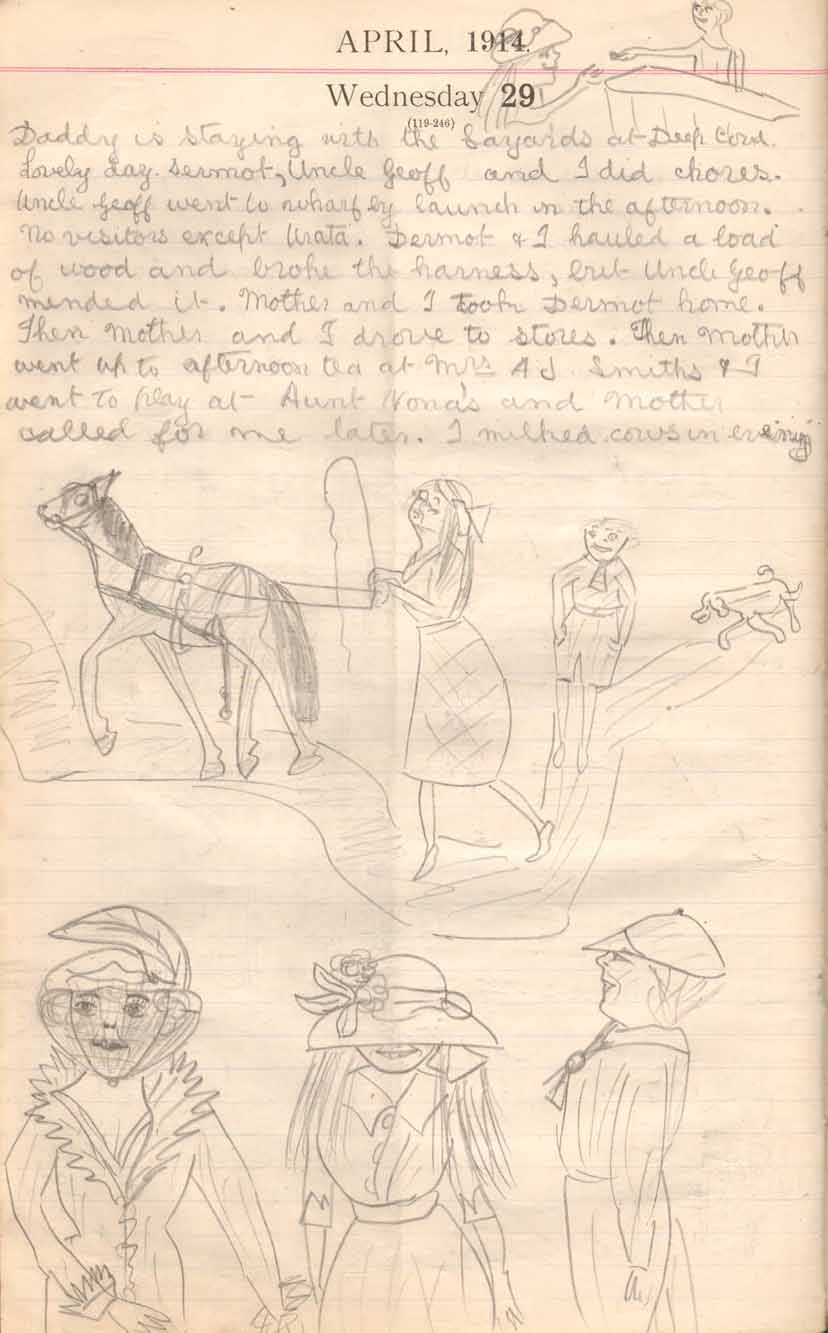 APRIL, 1914.
Wednesday 29
(119-246)
Daddy is staying with the Bayards at Deep Cove.
Lovely day. Dermot, Uncle Geoff and I did chores.
Uncle Geoff went to wharf by launch in the afternoon.
No visitors except Urata. Dermot & I hauled a load
of wood and broke the harness, but Uncle Geoff
mended it. Mother and I took Dermot home.
Then Mother and I drove to stores. Then Mother
went up to afternoon tea at Mrs A J. Smiths & I
went to play at Aunt Nona's and Mother
called for me later. I milked cows in evening